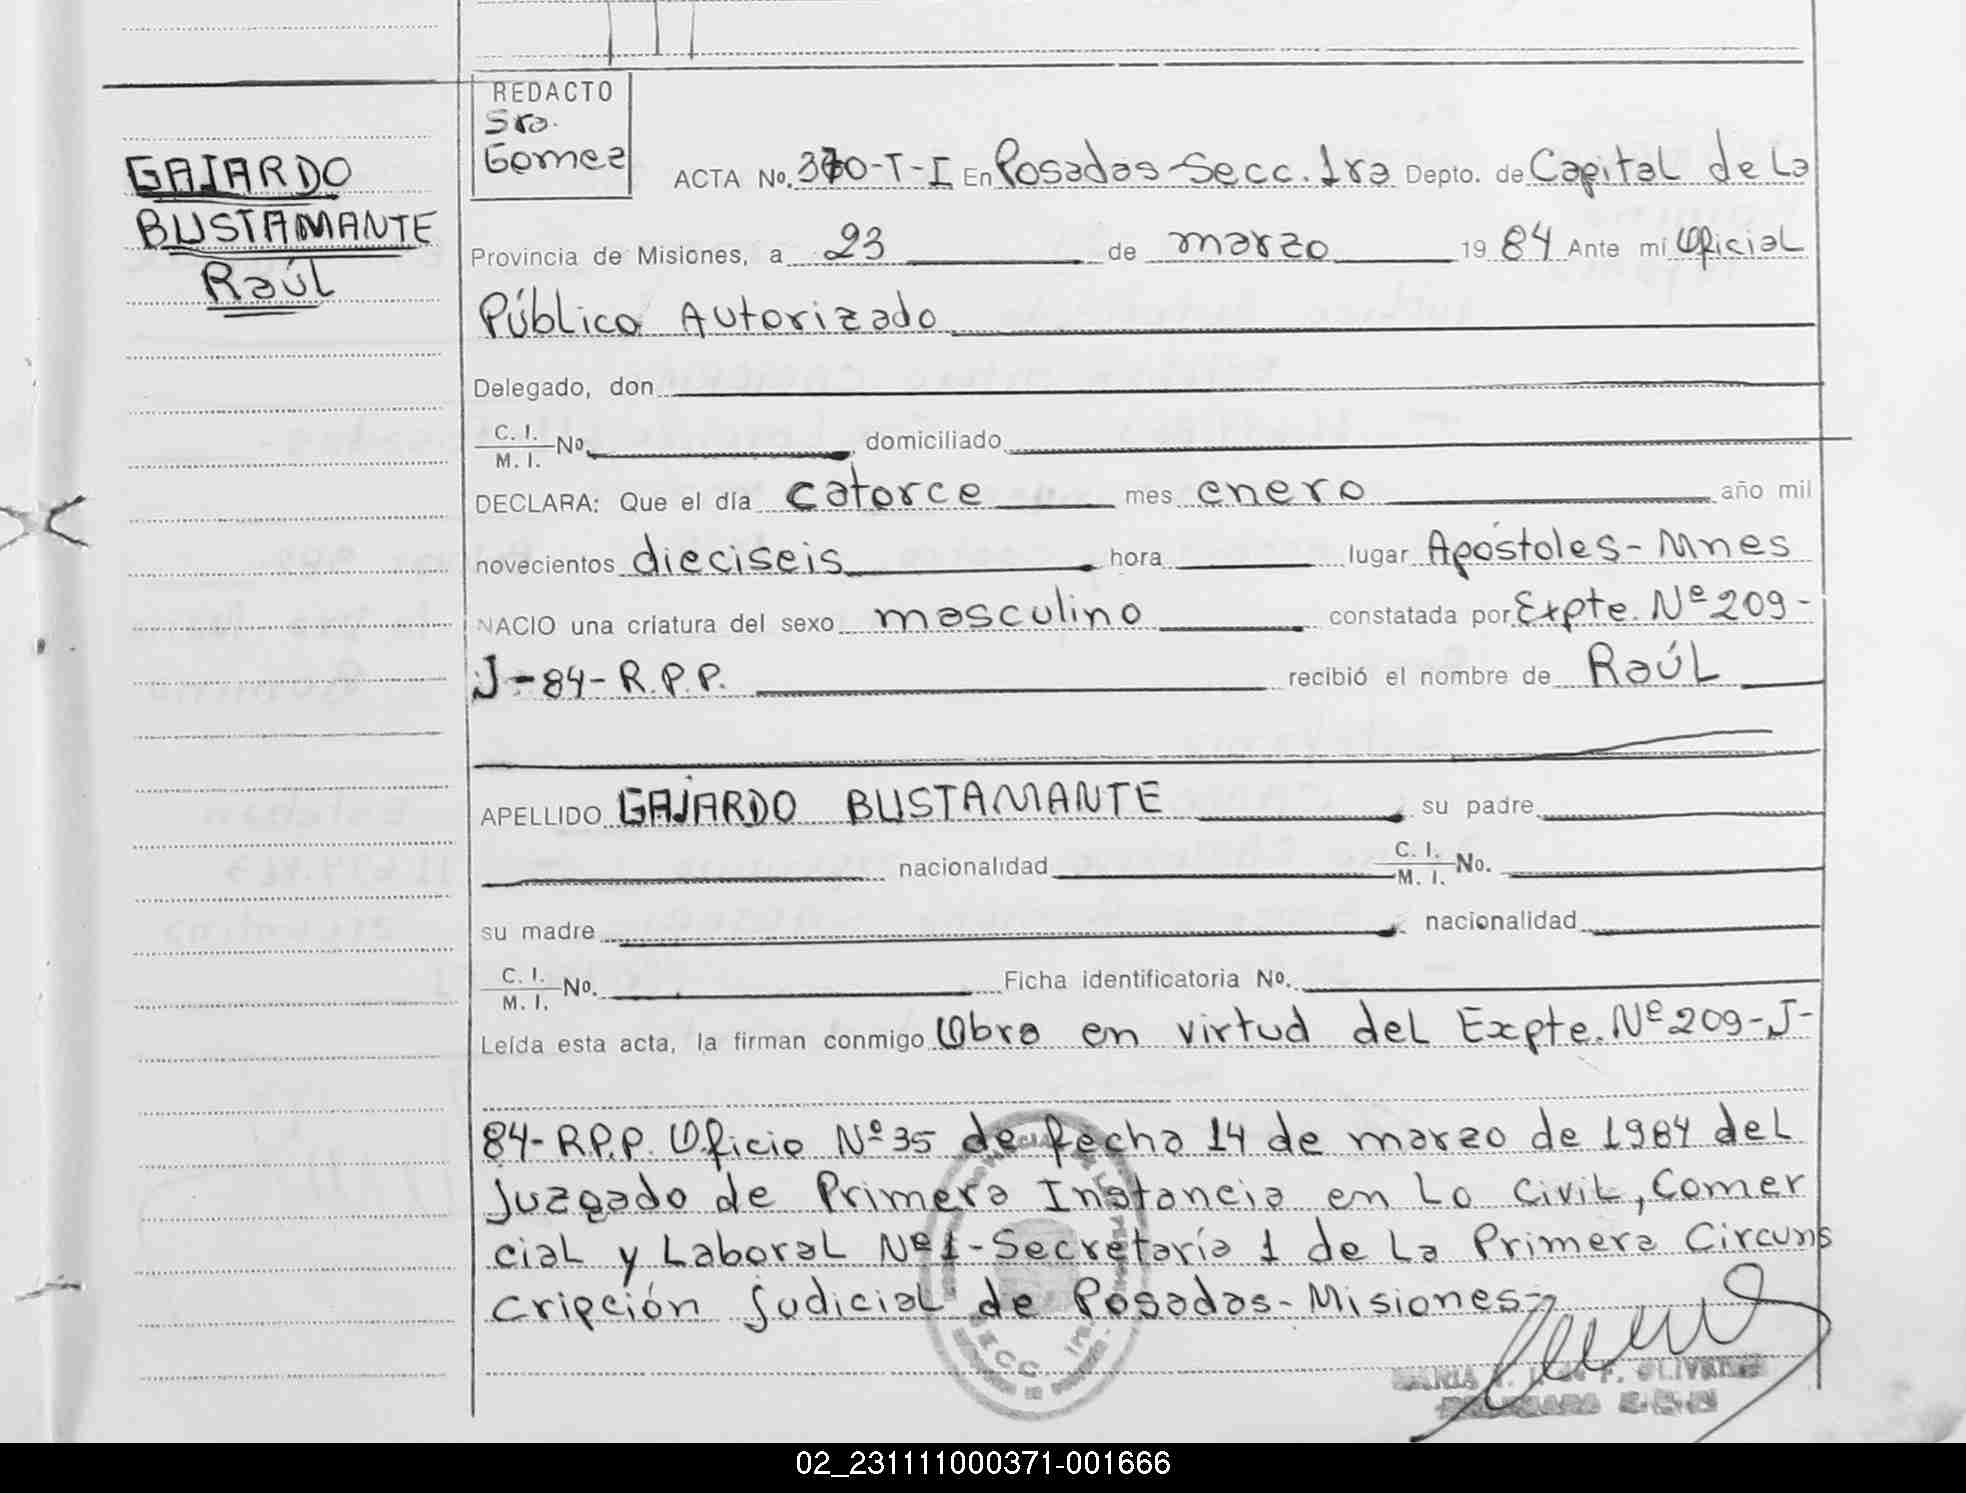 GAJARDO
BUSTAMANTE
Raúl
REDACTO
Sra.
Gomez
ACTA No. 370-T-I En Posadas-Secc. 1ra Depto. de Capital de La
Provincia de Misiones, a 23 de marzo 19 84 Ante mi Oficial
Público Autorizado
Delegado, don
C. I. M. I. No. domiciliado
DECLARA: Que el día catorce mes enero año mil
novecientos dieciseis hora lugar Apóstoles-Mnes
NACIO una criatura del sexo masculino constatada por Expte. Nº 209-
J-84-R.P.P. recibió el nombre de Raúl
APELLIDO GAJARDO BUSTAMANTE su padre
nacionalidad C. I. M. I. No.
su madre nacionalidad
C. I. M. I. No. Ficha identificatoria No.
Leída esta acta, la firman conmigo Obra en virtud del Expte. Nº 209-J-
84-R.P.P. Oficio Nº 35 de fecha 14 de marzo de 1984 del
Juzgado de Primera Instancia en Lo Civil, Comer
cial y Laboral Nº 1-Secretaría 1 de La Primera Circuns
cripción Judicial de Posadas-Misiones-
MARIA
02_231111000371-001666